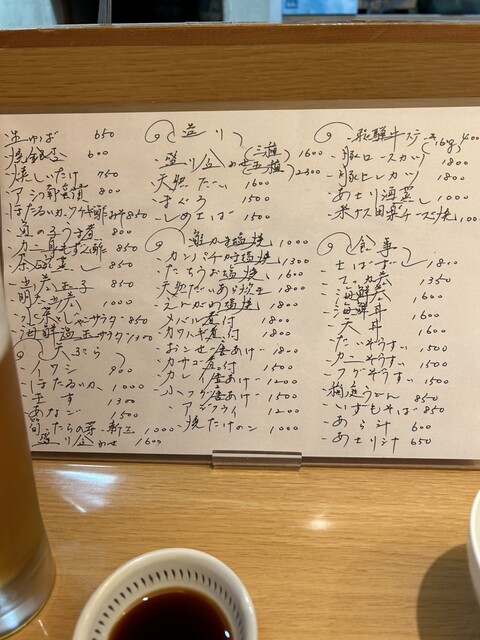 生ゆば 650
焼銀杏 600
焼しいたけ 750
アジ南蛮漬 800
ほたるいかヌタ酢みそ 850
鯛の子うま煮 800
カニ身もずく酢 850
茶碗蒸し 850
出巻玉子 850
明太出巻 1000
水菜じゃこサラダ 850
海鮮温玉サラダ 1300
天ぷら
イワシ 900
ほたるいか 1000
キス 1300
あなご 1500
旬 たらの芽・新玉 1000
盛り合わせ 1600
造り
盛り合わせ 三種 1600
五種 2300
天然たい 1600
まぐろ 1500
しめさば 1500
鮭かま塩焼 1000
カンパチカマ塩焼 1300
たちうお塩焼 1600
天然だいあら炊き 1800
1800
メバル煮付 1800
カワハギ煮付 1800
おこぜ唐あげ 1800
カサゴ 1500
カレイ唐あげ 1200
小フグ唐あげ 1500
アジフライ 1200
焼たけのこ 1000
飛騨牛ステーキ(160g)
豚ロースカツ 1800
豚ヒレカツ 1800
あさり酒蒸し 1000
米ナス田楽チーズ焼
食事
さばずし 1800
1350
海鮮巻 1600
海鮮丼 1600
天丼 1600
たいぞうすい 1500
カニぞうすい 1500
フグぞうすい 1500
梅庭うどん 850
いずもそば 850
あら汁 600
あさり汁 650